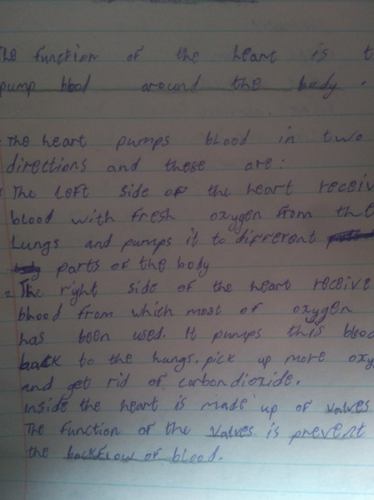 The function of the heart is t
pump blood around the body.
The heart pumps blood in two
directions and these are:
The left side of the heart receiv
blood with fresh oxygen from the
Lungs and pumps it to different
parts of the body
= The right side of the heart receive
blood from which most of oxygen
has been used. It pumps this blood
back to the lungs. pick up more oxy
and get rid of carbondioxide.
inside the heart is made up of valves
The function of the valves is prevent
the backflow of blood.